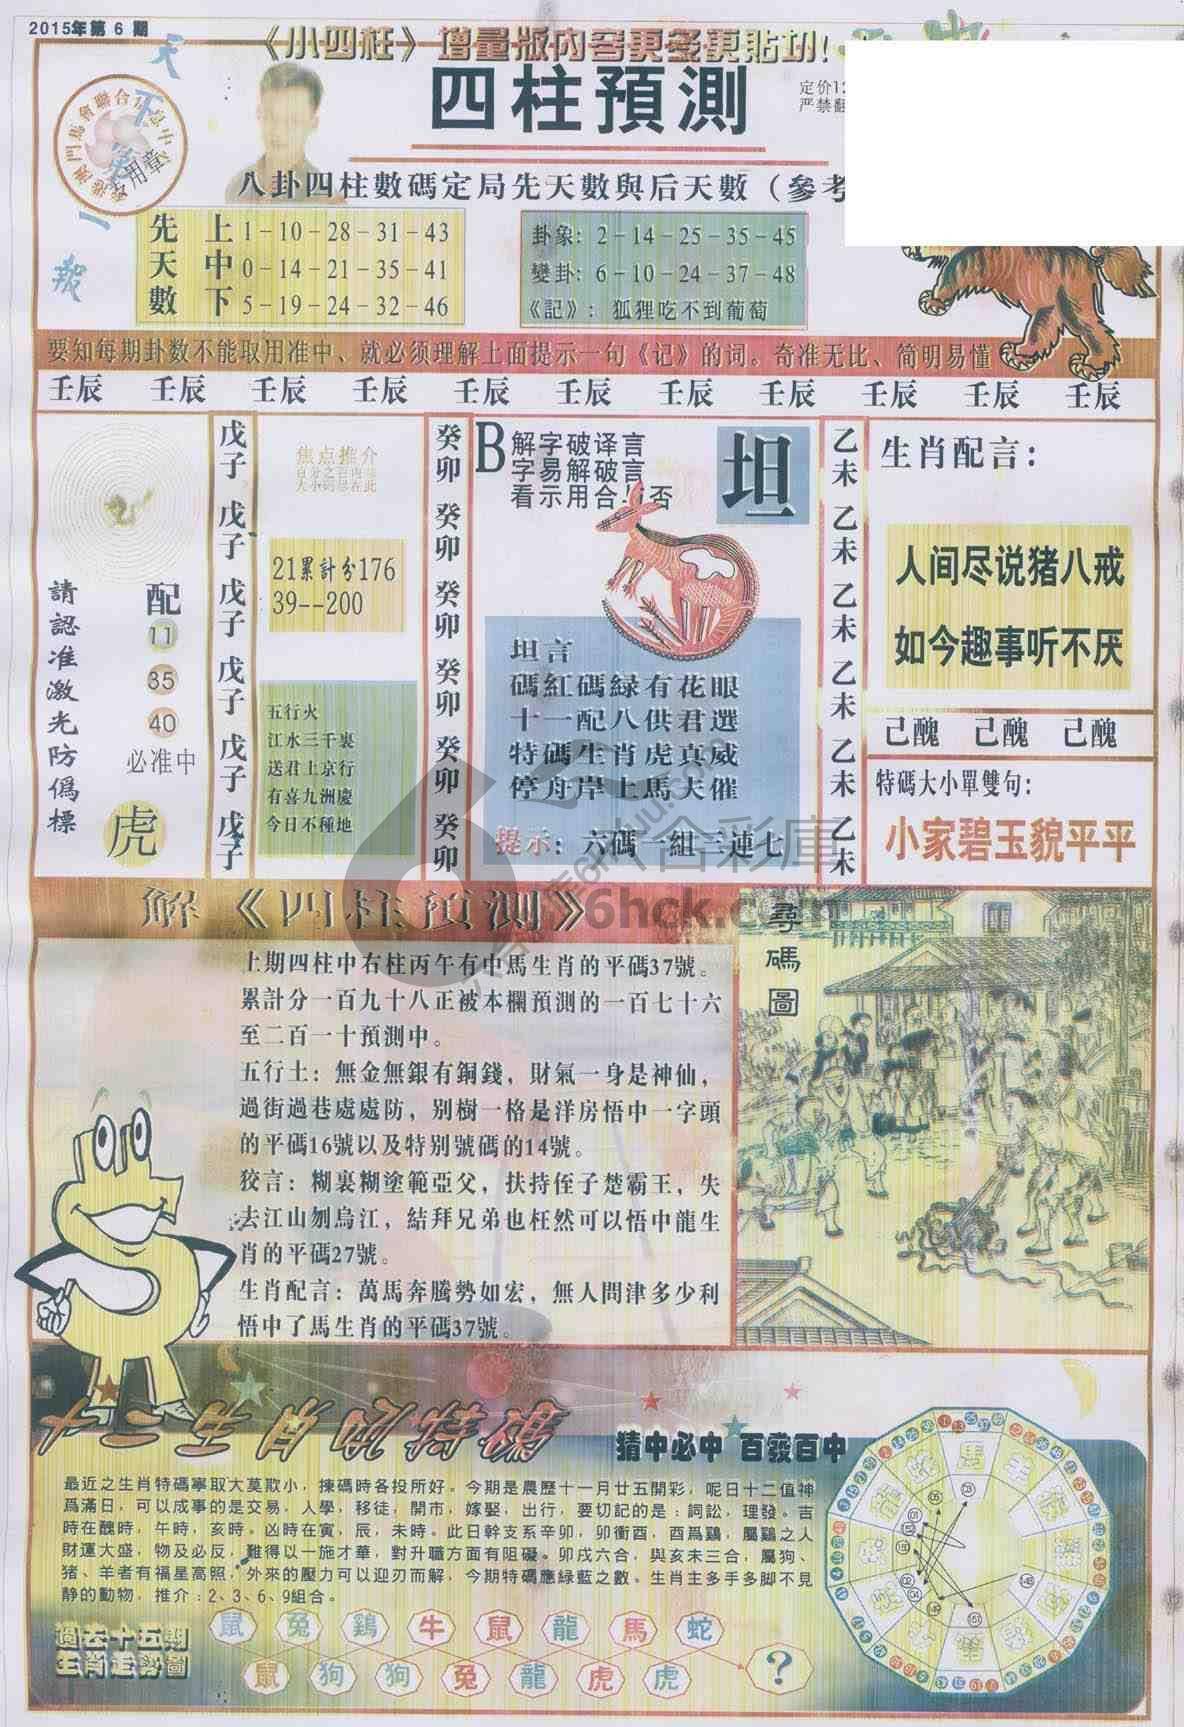 2015年第 6 期
《小四柱》增量版內容更多更貼切!
四柱預測
定价12
严禁翻
天下第一報
八卦四柱數碼定局先天數與后天數（參考
先天數
上 1-10-28-31-43
中 0-14-21-35-41
下 5-19-24-32-46
卦象: 2-14-25-35-45
變卦: 6-10-24-37-48
《記》: 狐狸吃不到葡萄
要知每期卦数不能取用准中、就必须理解上面提示一句《记》的词。奇准无比、简明易懂
壬辰 壬辰 壬辰 壬辰 壬辰 壬辰 壬辰 壬辰 壬辰 壬辰 壬辰
請認准激光防僞標
配
11
35
40
必准中
虎
戊子 戊子 戊子 戊子 戊子 戊子
焦点推介
21累計分176
39--200
五行火
江水三千裏
送君上京行
有喜九洲慶
今日不種地
癸卯 癸卯 癸卯 癸卯 癸卯 癸卯
B
解字破译言
字易解破言
看示用合与否
坦
坦言
碼紅碼綠有花眼
十一配八供君選
特碼生肖虎真威
停舟岸上馬夫催
提示: 六碼一組三連七
乙未 乙未 乙未 乙未 乙未 乙未
生肖配言:
人间尽说猪八戒
如今趣事听不厌
己醜 己醜 己醜
特碼大小單雙句:
小家碧玉貌平平
解《四柱預測》
上期四柱中右柱丙午有中馬生肖的平碼37號。
累計分一百九十八正被本欄預測的一百七十六
至二百一十預測中。
五行土: 無金無銀有銅錢, 財氣一身是神仙,
過街過巷處處防, 別樹一格是洋房悟中一字頭
的平碼16號以及特别號碼的14號。
狡言: 糊裏糊塗範亞父, 扶持侄子楚霸王, 失
去江山刎烏江, 結拜兄弟也枉然可以悟中龍生
肖的平碼27號。
生肖配言: 萬馬奔騰勢如宏, 無人問津多少利
悟中了馬生肖的平碼37號。
尋碼圖
六合彩庫
6hck.com
猜中必中 百發百中
最近之生肖特碼寧取大莫欺小，揀碼時各投所好。今期是農歷十一月廿五開彩，呢日十二值神
爲滿日，可以成事的是交易，入學，移徒，開市，嫁娶，出行，要切記的是：詞訟，理發。吉
時在醜時，午時，亥時。凶時在寅，辰，未時。此日幹支系辛卯，卯衝酉，酉爲鷄，屬鷄之人
財運大盛，物及必反，難得以一施才華，對升職方面有阻礙。卯戌六合，與亥未三合，屬狗、
猪、羊者有福星高照，外來的壓力可以迎刃而解，今期特碼應綠藍之數。生肖主多手多脚不見
静的動物，推介：2、3、6、9組合。
過去十五期
生肖走勢圖
鼠 兔 鷄 牛 鼠 龍 馬 蛇
鼠 狗 狗 兔 龍 虎 虎 ?